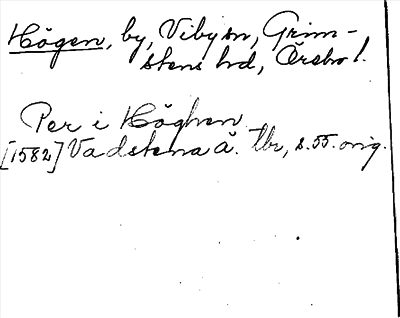 Högen, by, Viby sn, Grim-
stens hd, Örebro l.
Per i Höghen
[1582] Vadstena ä. tbr, s. 55. orig.